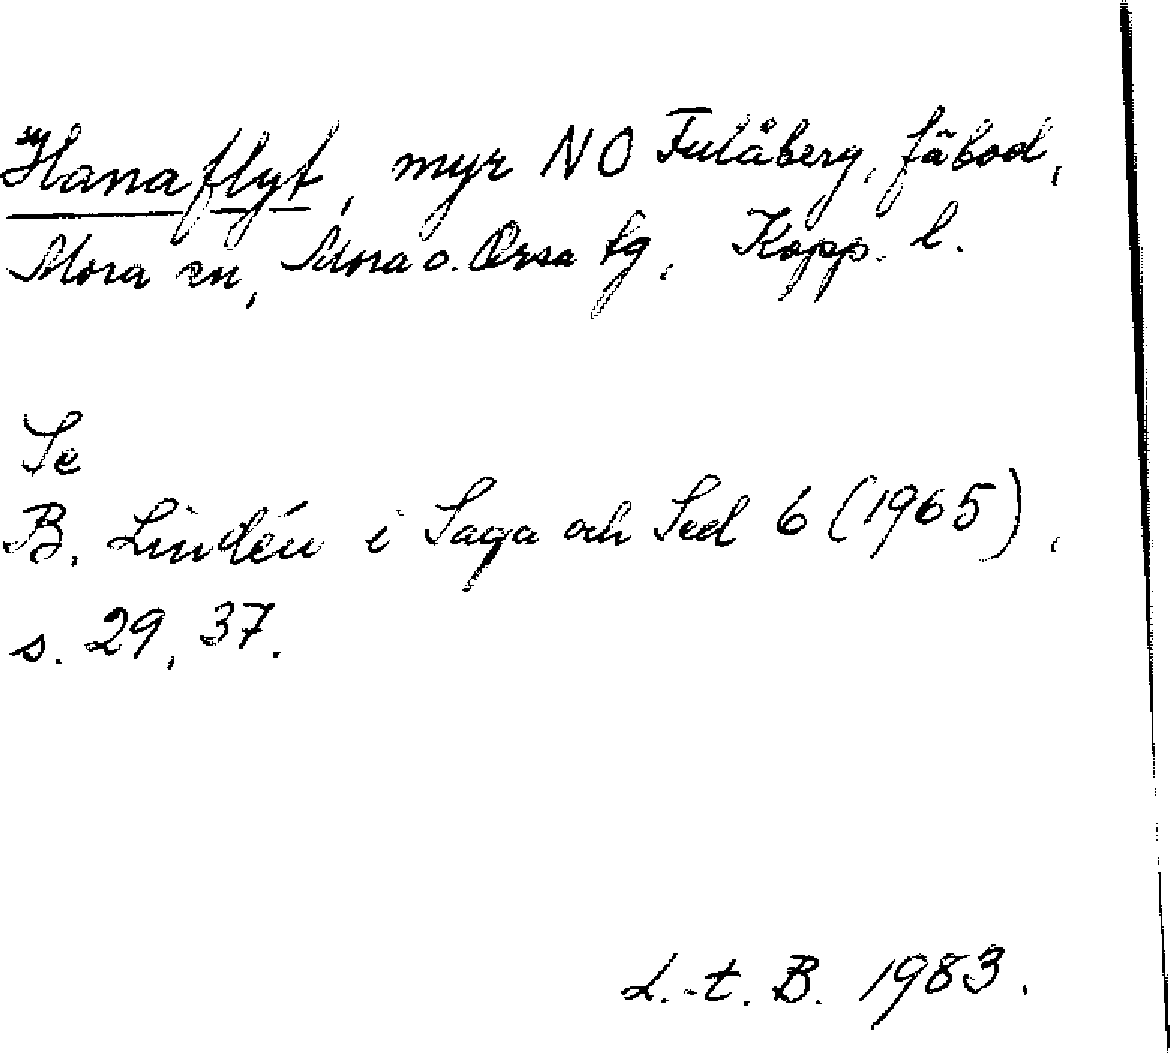 Hanaflyt, myr NO Fulåberg, fäbod,
Mora sn, Mora o. Orsa tg, Kopp. l.
Se
B. Lindén i Saga och Sed 6 (1965),
s. 29, 37.
L.-t. B. 1983.